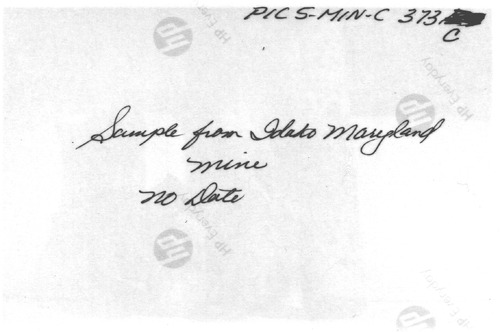 PIC 5-MIN-C 373
C
Sample from Idaho Maryland
Mine
No Date
hp HP Everyday
hp HP Everyday
hp HP Everyday
hp HP Everyday